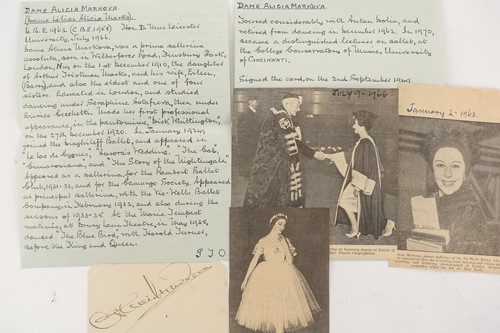 DAME ALICIA MARKOVA
(Dame Lilian Alicia Marks)
D.B.E. 1963 (C.B.E. 1958) Hon. D. Mus. Leicester
University, July 1966.
Dame Alicia Markova, was a prima ballerina
assoluta, born in Wilberforce Road, Finsbury Park,
London, N.4. on the 1st December 1910, the daughter
of Arthur Tristman Marks, and his wife, Eileen,
(Barry), and also the eldest and one of four
sisters. Educated in London, and studied
dancing under Seraphine Astafieva, then under
Enrico Cecchetti. Made her first professional
appearance, in the pantomime, "Dick Whittington",
on the 27th December 1920. In January 1924,
joined the Diaghileff Ballet, and appeared in
"Le Lac de Cygnes", "Aurora's Wedding", "The Cat",
"Cimarosiana", and "The Story of the Nightingale".
Appeared as a ballerina, for the Rambert Ballet
Club, 1931-33, and for the Camargo Society. Appeared
as principal ballerina, with the Vic-Wells Ballet
Company, in February 1932, and also during the
seasons of 1933-35. At the Marie Tempest
matinée, at Drury Lane Theatre, in May 1935,
danced "The Blue Bird", with Harold Turner,
before the King and Queen.
P.T.O
DAME ALICIA MARKOVA
Toured considerably with Anton Dolin, and
retired from dancing in December 1962. In 1970,
became a distinguished lecturer on ballet, at
the College Conservatory of Music, University
of Cincinnati.
Signed the card on the 2nd September 1949.
JULY 9-1966
January 2-1963.
Alicia Markova